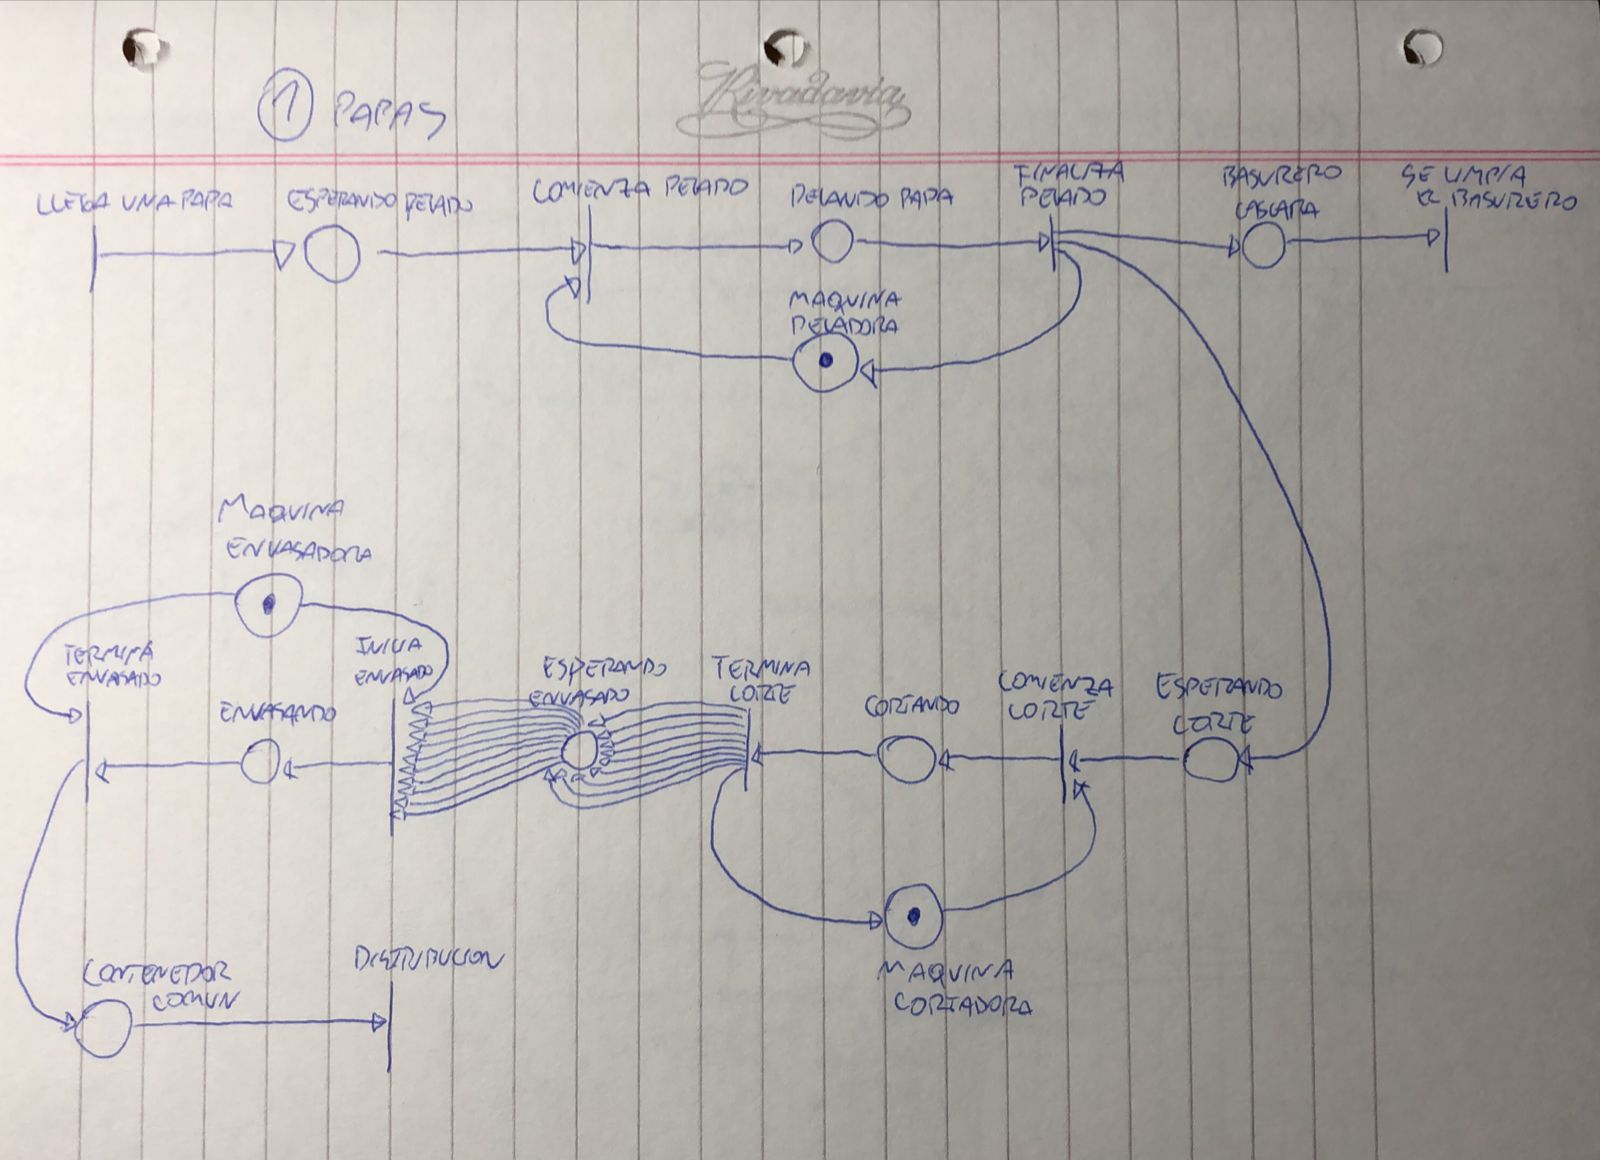 Rivadavia
1 PAPAS
LLEGA UNA PAPA
ESPERANDO PELADO
COMIENZA PELADO
PELANDO PAPA
FINALIZA
PELADO
BASURERO
CASCARA
SE LIMPIA
EL BASURERO
MAQUINA
PELADORA
MAQUINA
ENVASADORA
TERMINA
ENVASADO
ENVASANDO
INICIA
ENVASADO
ESPERANDO
ENVASADO
TERMINA
CORTE
CORTANDO
COMIENZA
CORTE
ESPERANDO
CORTE
MAQUINA
CORTADORA
CONTENEDOR
COMUN
DISTRIBUCION